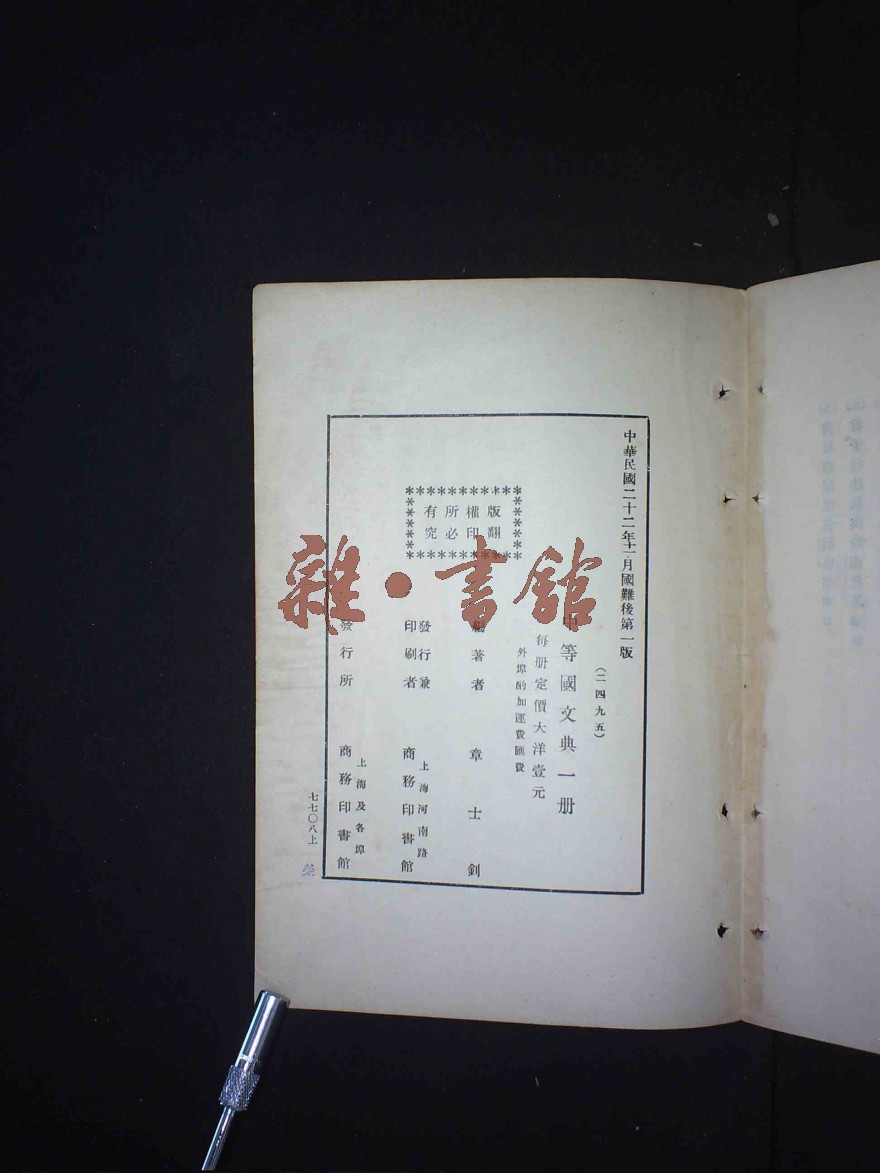 中華民國二十二年十一月國難後第一版
（二四九五）
中等國文典一册
每册定價大洋壹元
外埠酌加運費匯費
版權所有
翻印必究
編著者　章士釗
發行兼印刷者　上海河南路
商務印書館
發行所　上海及各埠
商務印書館
七七〇八上
榮
雜·書館